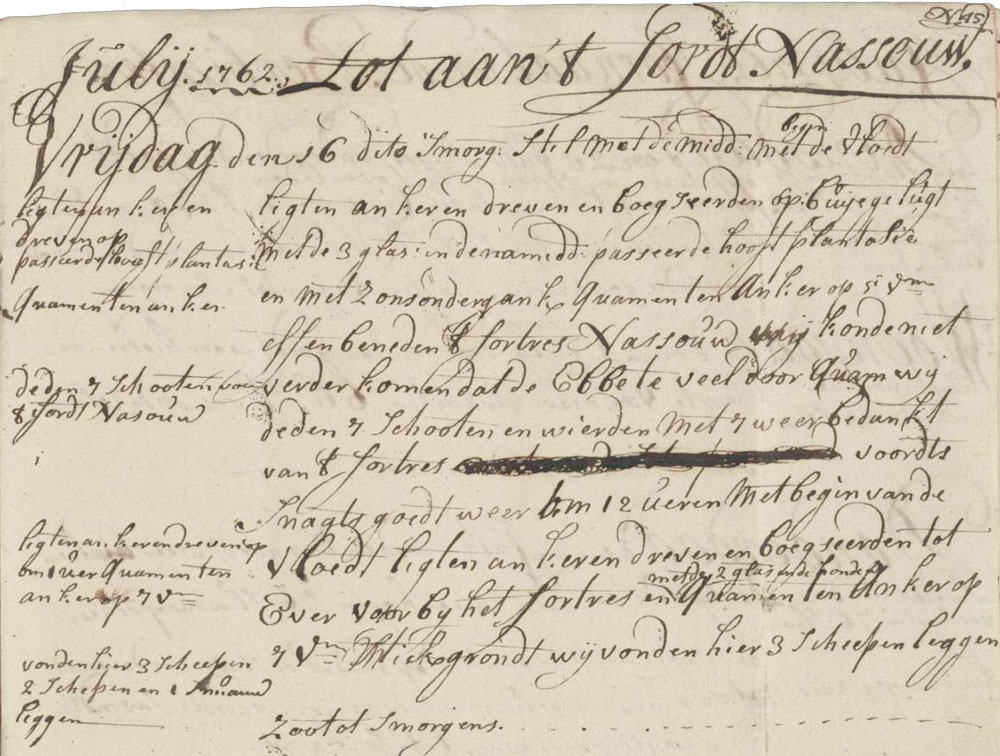 No 45
July. 1762. Tot aan't fordt Nassouw.
Vrijdag den 16 dito Smorg: Stil met de midd: begin met de Vloedt
ligten anker en
dreven op
passeerde hooft plantasi:
quamen ten anker.
deden 7 Schooten voor
't fordt Nasouw
ligten anker en dreven op
om 1 uer quamen ten
anker op 7 vm
vonden hier 3 Scheepen
2 Schepen en 1 Snauw
leggen
ligten anker en dreven en boegseerden op: buije gelugt
met de 3 glas: in de namidd: passeerde hooft plantasie
en met Zonsondergank quamen ten Anker op 5 vm
effen beneden 't fortres Nassouw wij konde niet
verder komen dat de Ebbe te veel door quam wij
deden 7 Schooten en wierden met 7 weer bedankt
van 't fortres voordts
Snagts goedt weer om 12 ueren met begin van de
Vloedt ligten anker en dreven en boegseerden tot
Ever voor by het fortres en met de 2 glas en de honde: quamen ten Anker op
7 Vm Stick grondt wij vonden hier 3 Scheepen leggen
Zoo tot Smorgens.